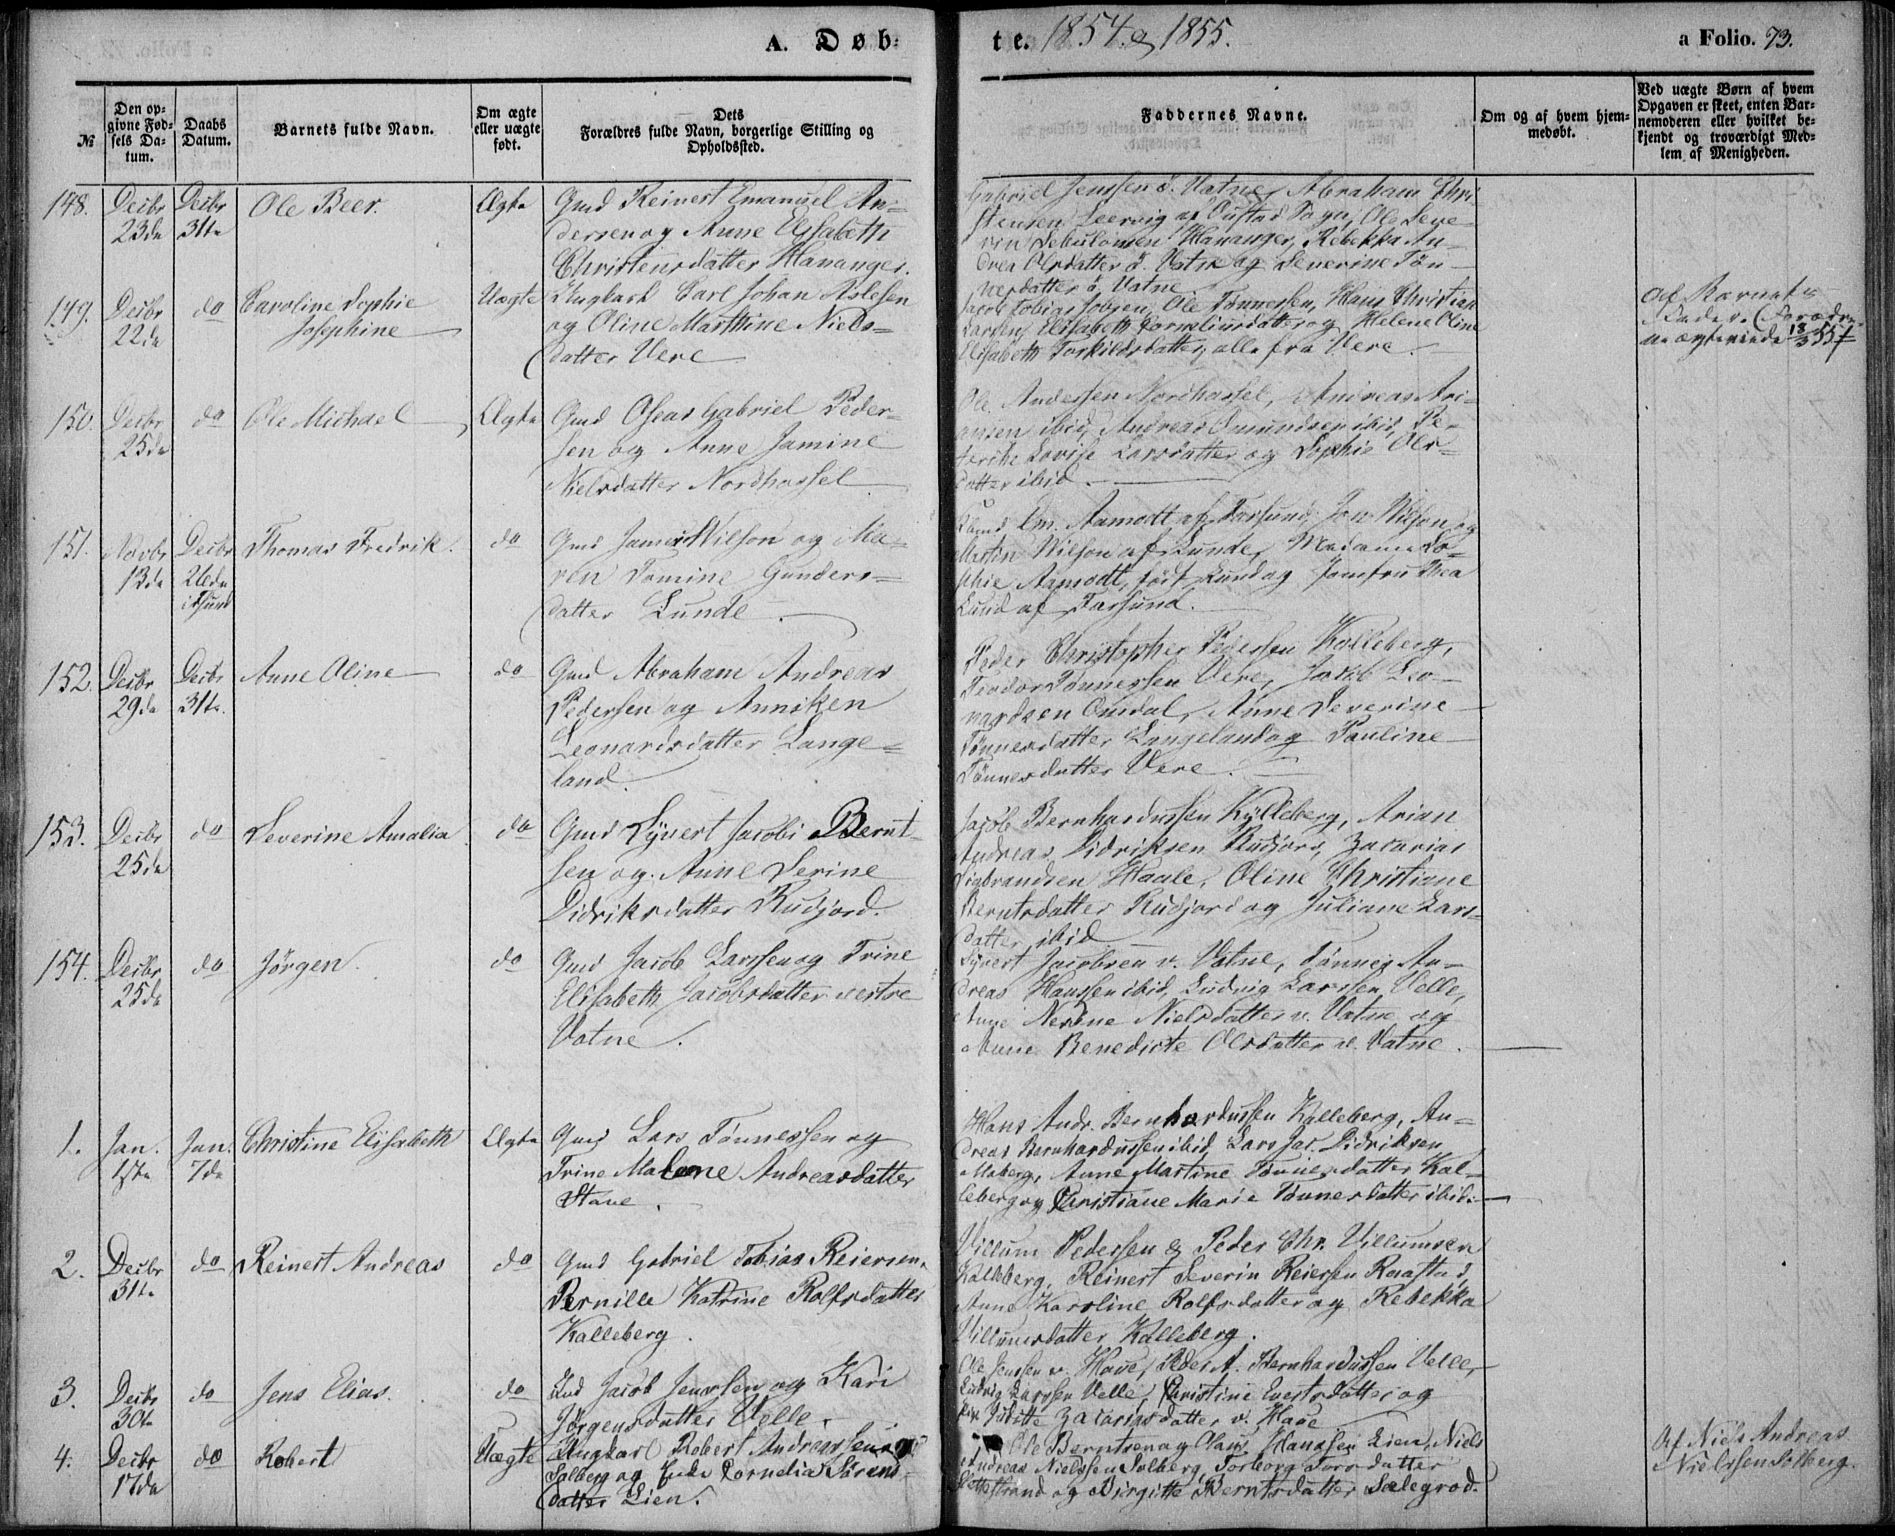 A. Døb-
te. 1854 og 1855.
a Folio. 73.
№
Den op-
givne Fød-
sels Da-
tum.
Daabs
Datum.
Barnets fulde Navn.
Om ægte
eller uægte
født.
Dets
Forældres fulde Navn, borgerlige Stilling og
Opholdssted.
Faddernes Navne.
Om og af hvem hjem-
medøbt.
Ved uægte Børn af hvem
Opgaven er skeet, enten Bar-
nemoderen eller hvilket be-
kjendt og troværdigt Med-
lem af Menigheden.
148.
Decbr
23de
Decbr
31te
Ole Beer.
Ægte
Gmd Reinert Emanuel An-
dersen og Anne Elisabeth
Christensdatter Hananger.
Gabriel Jensen ö. Vatne, Abraham Chri-
stensen Leervig af Sogn, Ole Seve-
rin Sebulonsen Hananger, Rebekka An-
drea Olsdatter ö. Vatne og Severine Tön-
nesdatter ö. Vatne.
149.
Decbr
22de
do
Caroline Sophie
Josephine
Uægte
Ungkarl Carl Johan Aslesen
og Oline Marthine Niels-
datter Vere
Jacob Tobias Jobsen, Ole Tønnessen, Hans Christian
Larsen, Elisabeth Corneliusdatter og Helene Oline
Elisabeth Torkildsdatter, alle fra Vere.
Af Barnets
Fader. (Foræld-
ne ægteviede 18/3 55.)
150.
Decbr
25de
do
Ole Michael
Ægte
Gmd Oseas Gabriel Peder-
sen og Anne Jamine
Nielsdatter Nordhassel
Ole Andersen Nordhassel, Andreas Ari-
ansen ibid, Andreas Omundsen ibid, Pe-
Lovise Larsdatter og Sophie Ols-
datter ibid.
151.
Novbr
13de
Decbr
26de
i Fsund
Thomas Fredrik.
do
Gmd James Wilson og Ma-
ren Tomine Gunders-
datter Lunde.
Em. Aamodt af Farsund, Wilson og
Martin Wilson af Lunde, Madame So-
phie Aamodt, født Lund og Jomfru Thea
Lund af Farsund.
152.
Decbr
29de
Decbr
31te.
Anne Oline
do
Gmd Abraham Andreas
Pedersen og Anniken
Leonardsdatter Lange-
land.
Peder Christopher Pedersen Kalleberg,
Teodor Tönnessen Vere, Jacob Leo-
nardsen Omdal, Anne Severine
Tönnesdatter Langeland og Pauline
Tönnesdatter Vere.
153.
Decbr
25de
do
Severine Amalia
do
Gmd Syvert Jacobi Bernt-
sen og Anne Serine
Didriksdatter Rudjord.
Jacob Bernhardussen Kylleberg, Arian
Andreas Didriksen Rudjord, Zacarias
Sigbrandsen Haale, Oline Christiane
Berntsdatter Rudjord og Juliane Lars-
datter ibid
154.
Decbr
25de
do
Jørgen.
do
Gmd Jacob Larssen og Trine
Elisabeth Jacobsdatter vestre
Vatne.
Syvert Jacobsen v. Vatne, Tönnes An-
dreas Hanssen ibid, Ludvig Larssen Velle,
Anne Nerene Nielsdatter v. Vatne og
Anne Benedicte Olsdatter v. Vatne.
1.
Jan.
1ste
Jan.
7de
Christine Elisabeth
Ægte
Gmd Lars Tönnessen og
Trine Malene Andreasdatter
Stave.
Hans Andr. Bernhardussen Kalleberg, An-
dreas Bernhardussen ibid, Lars Jac. Didriksen
Maberg, Anne Martine Tönnesdatter Kal-
leberg og Christiane Marie Tönnesdatter ibid.
2.
Decbr
31te
do
Reinert Andreas
do
Gmd Gabriel Tobias Reiersen,
Pernille Katrine Rolfsdatter
Kalleberg.
Villum Pedersen & Peder Chr. Villumsen
Kalleberg, Reinert Severin Reiersen Raastad,
Anne Karoline Rolfsdatter og Rebekka
Villumsdatter Kalleberg.
3.
Decbr
30te
do
Jens Elias.
do
Jacob Jenssen og Kari
Jörgensdatter Velle.
Ole Jenssen v. Haue, Peder A. Bernhardussen Velle,
Ludvig Larssen Velle, Christine Evertsdatter og
Julitte Zacariasdatter v. Haue
4.
Decbr
17de
do
Robert
Uægte
Ungkarl Robert Andreassen
Solberg og Cornelia Sörens-
datter Lien.
Ole Berntsen og Hans Hanssen Lien, Niels
Andreas Nielssen Solberg, Torborg Torsdatter
Slottestrand og Birgitte Berntsdatter Sælegrod.
Af Niels Andreas
Nielssen Solberg.